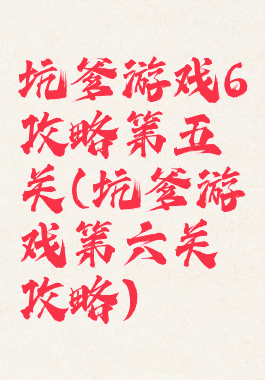 坑爹游戏6
攻略第五
关(坑爹游
戏第六关
攻略)